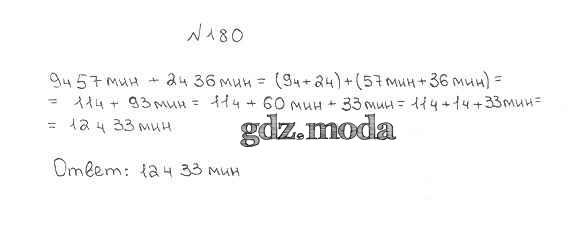 №180
9ч 57 мин + 2ч 36 мин = (9ч+2ч)+(57мин+36 мин) =
= 11ч + 93 мин = 11ч + 60 мин + 33 мин = 11ч+1ч+33мин=
= 12 ч 33 мин
gdz.moda
Ответ: 12 ч 33 мин